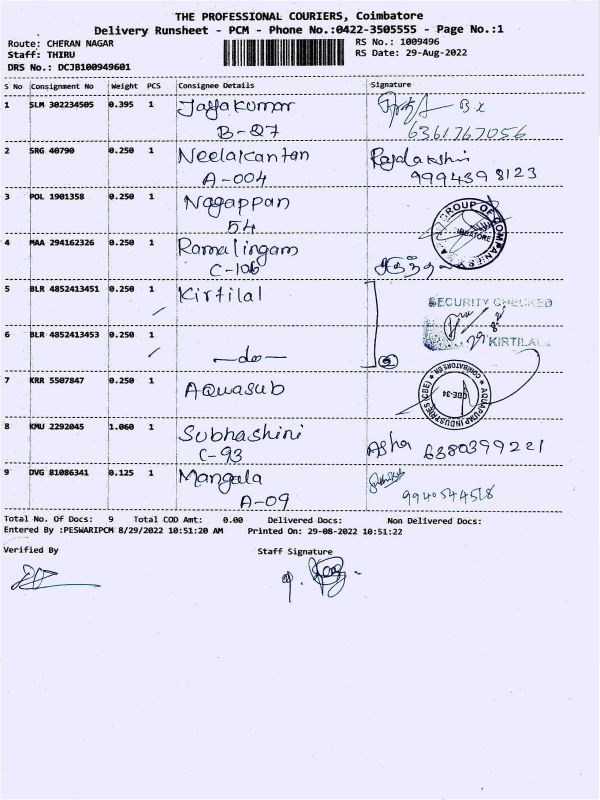 THE PROFESSIONAL COURIERS, Coimbatore
Delivery Runsheet - PCM - Phone No.:0422-3505555 - Page No.:1
Route: CHERAN NAGAR
Staff: THIRU
DRS No.: DCJB100949601
RS No.: 1009496
RS Date: 29-Aug-2022
S No Consignment No Weight PCS Consignee Details Signature
1 SLM 302234505 0.395 1 Jayakumar B x
B-27 6361767056
2 SRG 40790 0.250 1 Neelakantan Rajalakshmi
A-004 9994398123
3 POL 1901358 0.250 1 Nagappan
54
GROUP OF COMPANIES
4 MAA 294162326 0.250 1 Ramalingam
C-106
5 BLR 4852413451 0.250 1 Kirtilal
SECURITY CHECKED
KIRTILAL
6 BLR 4852413453 0.250 1 -do- 2
7 KRR 5507847 0.250 1 Aquasub
AQUAPUMP INDUSTRIES (CBE)
CBE-34
8 KMU 2292045 1.060 1 Subhashini
C-93 Asha 6380399221
9 DVG 81086341 0.125 1 Mangala
A-09 9940544518
Total No. Of Docs: 9 Total COD Amt: 0.00 Delivered Docs: Non Delivered Docs:
Entered By :PESWARIPCM 8/29/2022 10:51:20 AM Printed On: 29-08-2022 10:51:22
Verified By Staff Signature